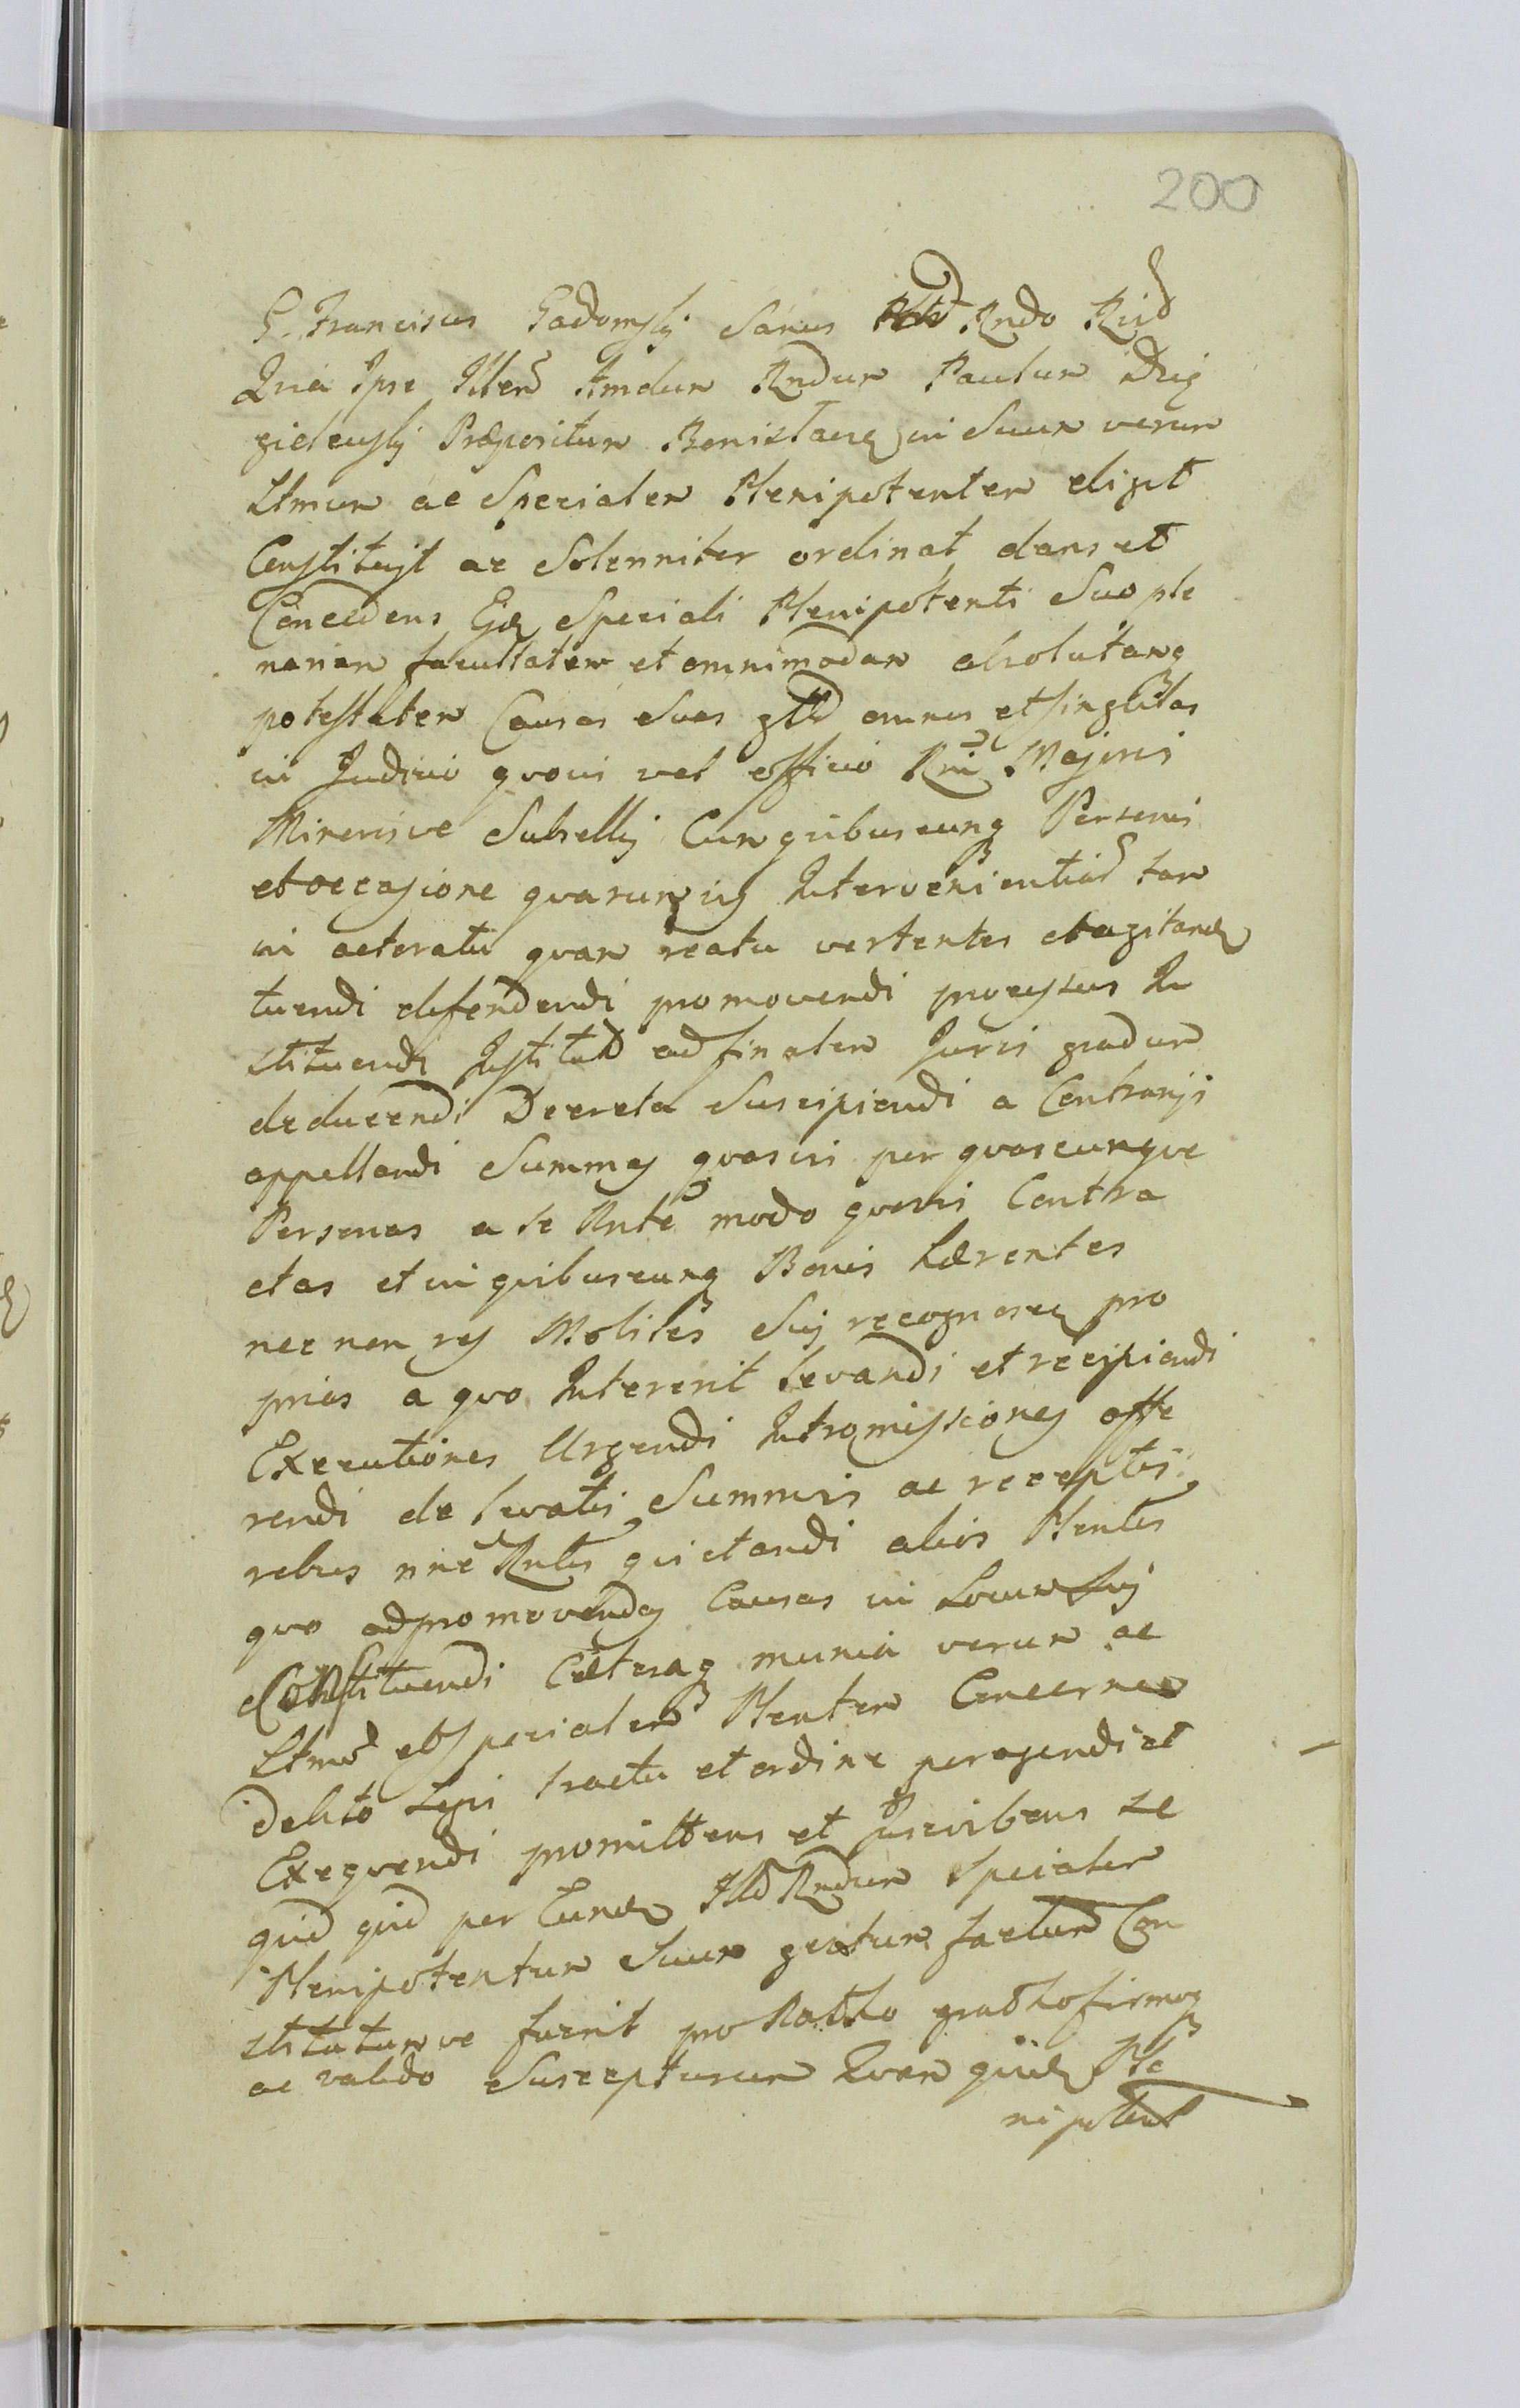 200
G. Franciscus Gadomskj Sanus Rndo Rld
Quia Ipse Illrem Amdum Rndum Paulum Dzię
gielewskj Præpositum Bonislaven in Suum verum
Ltmum ac Specialem Plenipotentem eligit
Constituit ac Solenniter ordinat dans et
Concedens Eidem Speciali Plenipotenti Suo ple
nariam facultatem et omnimodam absolutamq
potestatem Causas Suas gtld omnes et singulas
in Judicio quovis vel officio Rni Majoris
Minorisve Subsellij Cum quibuscunq Personis
et occasione quarumvis Intervenientiar tam
in actoratu quam reatu vertentes et agitandas
tuendi defendendi promovendi processus In
stituendi Institut ad finalem Juris gradum
deducendi Decreta Suscipiendi a Contrarijs
appellandi Summas quasvis per quascunque
Personas a se Rnte modo quovis Contra
ctas et in quibuscunq Bonis hærentes
nec non res Mobiles Sui recognoscen pro
prias a quo Intererit levandi et recipiendi
Executiones Urgendi Intromissiones offe
rendi de levatis Summis ac receptis
rebus nne Rntis quietandi alios Plentes
quo ad promovendas Causas in Locum Sui
Constituendi Cætteraq munia verum ac
Ltmu et Specialem Plentem Concernen
debito Legis tractu et ordine peragendi et
Exequendi promittens et Inscribens se
quid quid per Eundem Illd Rndum Specialem
Plenipotentem Suum gestum factum Con
stitutumve fuerit pro Ratho grathofirmoq
ac valido Suscepturum Quam quidem Ple
nipotent